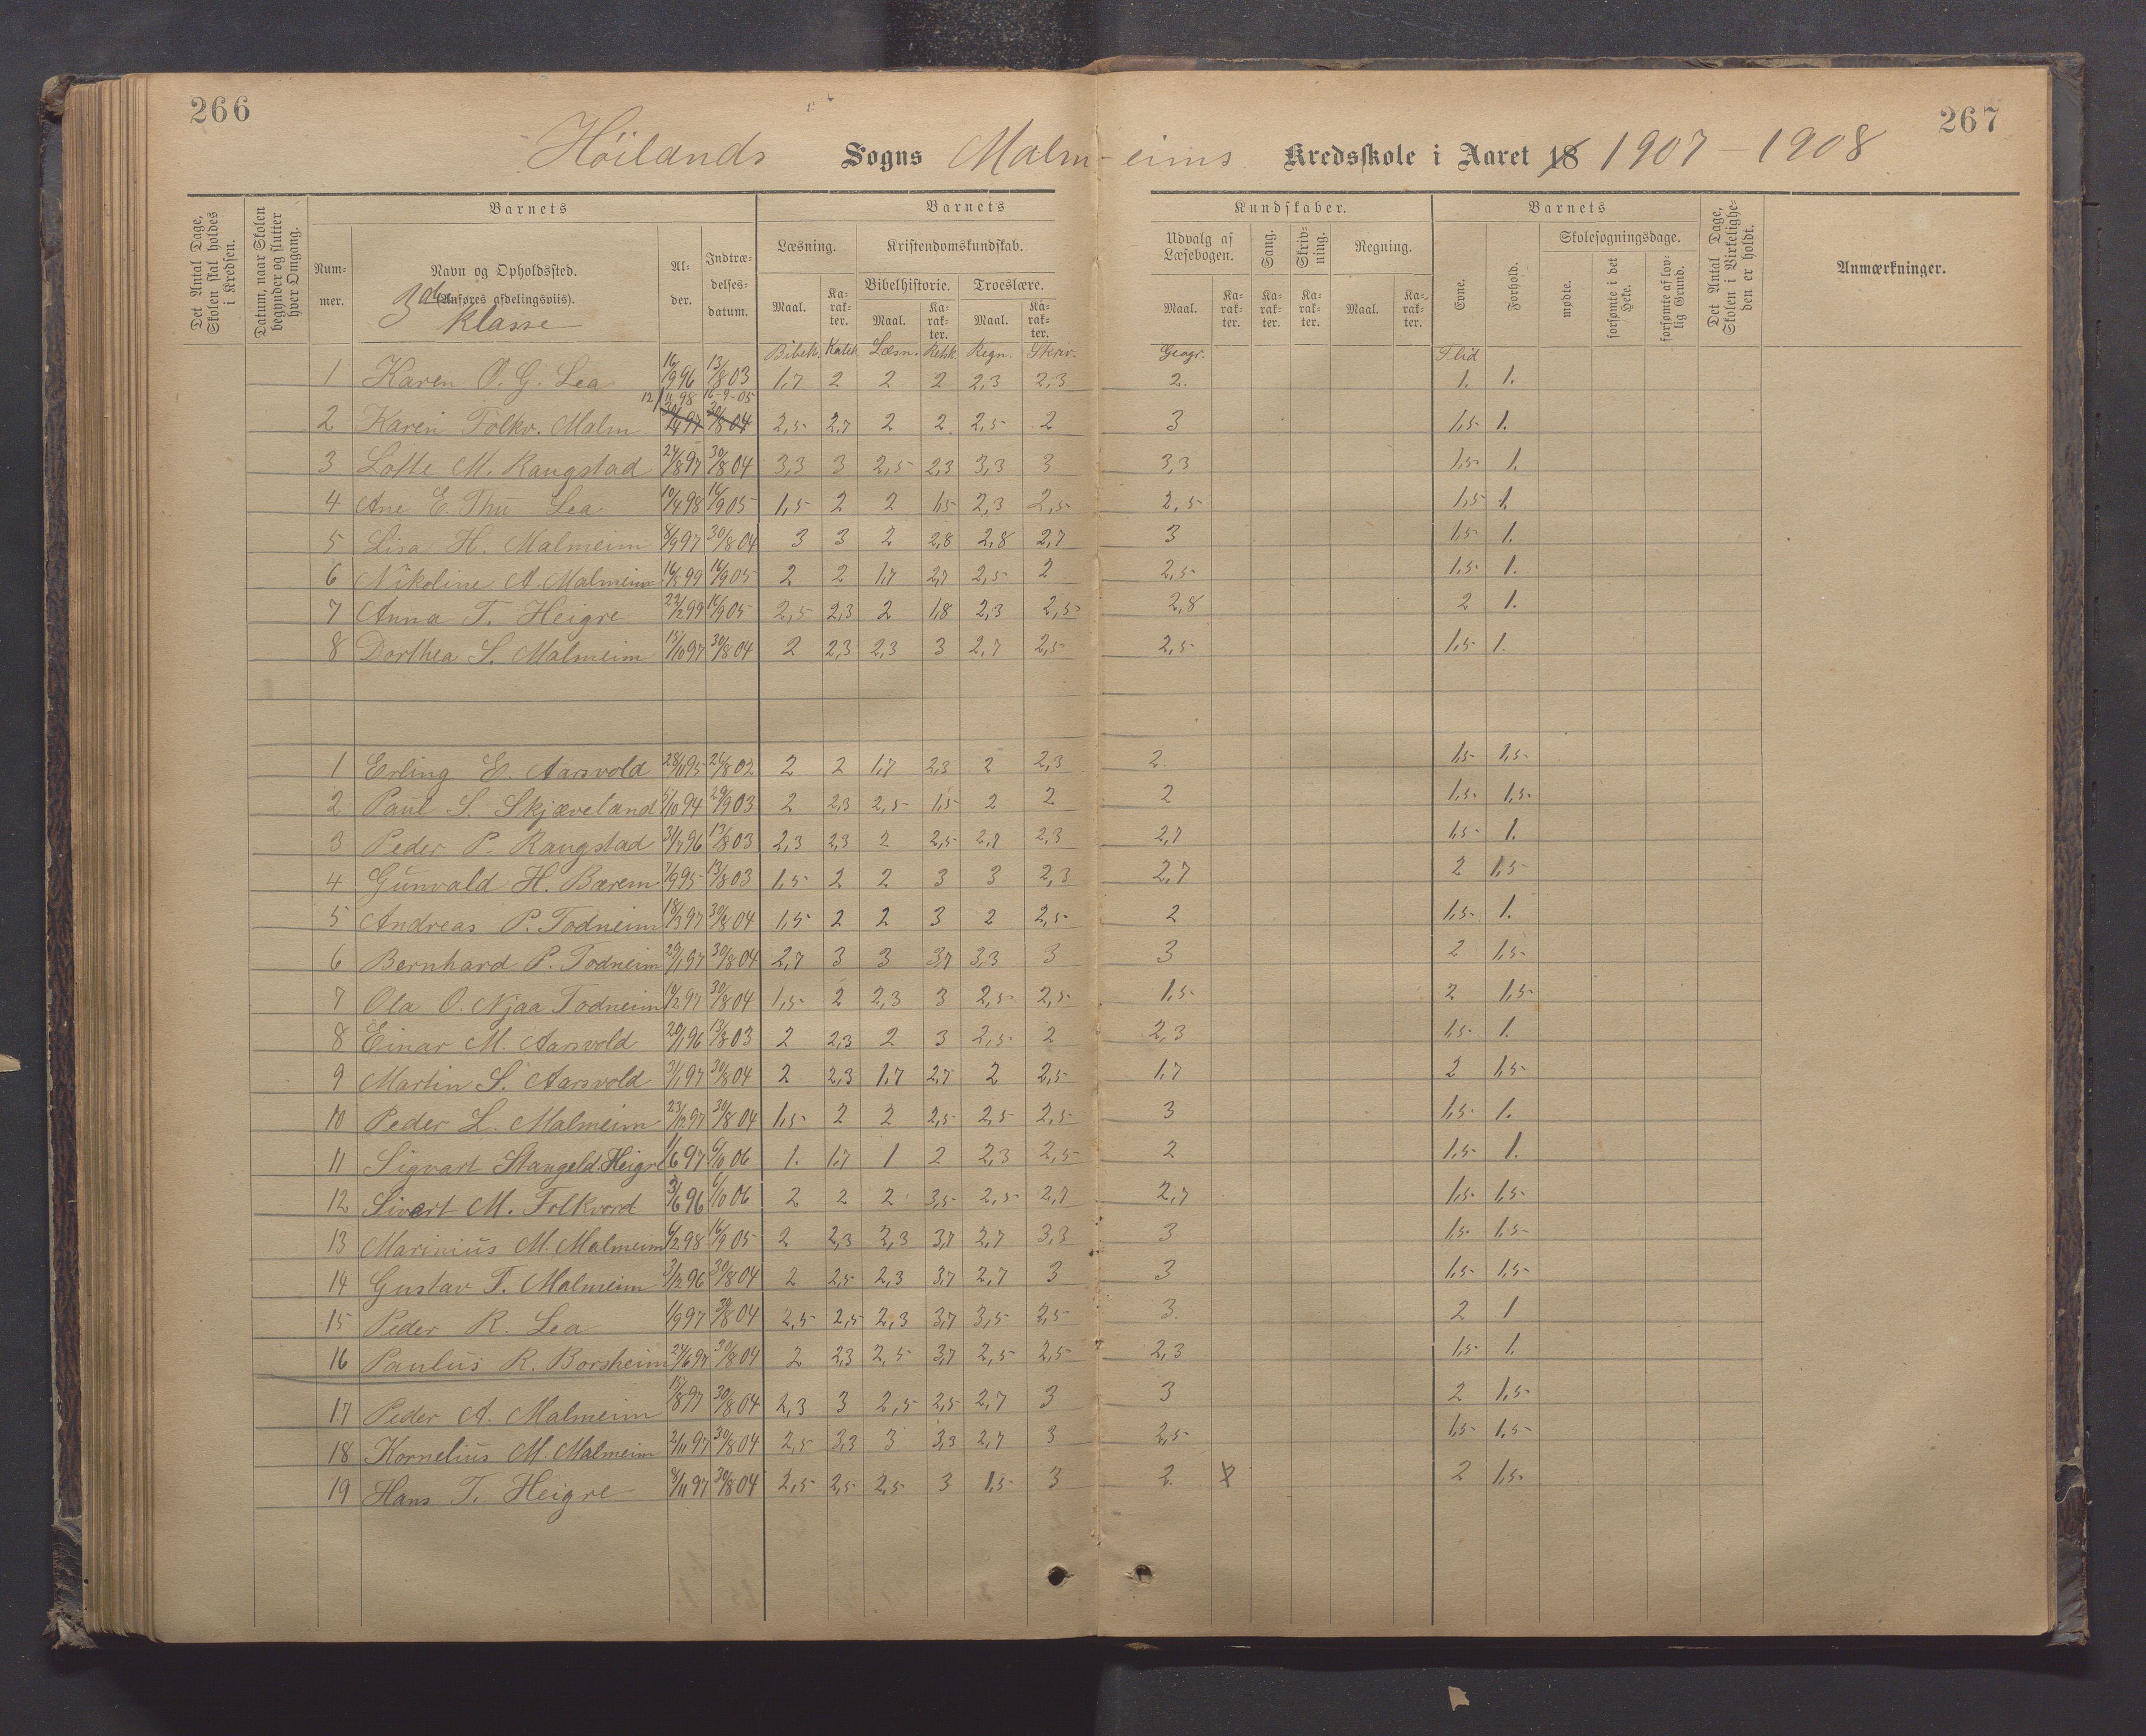 266
267
Höilands Sogns Malmeims Kredsskole i Aaret 18 1907-1908
Det Antal Dage, Skolen skal holdes i Kredsen.
Datum, naar Skolen begynder og slutter hver Omgang.
Barnets
Barnets
Kundskaber.
Barnets
Det Antal Dage, Skolen i Virkelighe-den er holdt.
Anmærkninger.
Num-mer.
Navn og Opholdssted.
(Anføres afdelingsviis).
3die Klasse
Al-der.
Indtræ-delses-datum.
Læsning.
Kristendomskundskab.
Udvalg af Læsebogen.
Sang.
Skriv-ning.
Regning.
Evne.
Forhold.
Skolesøgningsdage.
Bibelhistorie.
Troeslære.
mødte.
forsømte i det Hele.
forsømte af lov-lig Grund.
Maal.
Ka-rak-ter.
Maal.
Ka-rak-ter.
Maal.
Ka-rak-ter.
Maal.
Ka-rak-ter.
Ka-rak-ter.
Ka-rak-ter.
Maal.
Ka-rak-ter.
Bibelh. Katek. Læsn. Retsk. Regn. Skriv. Geogr. Flid
1 Karen O. G. Lea 16/9 96 13/8 03 1,7 2 2 2 2,3 2,3 2. 1. 1.
12/11 98 16-9-05
2 Karen Folkv. Malm 20/4 97 30/8 04 2,5 2,7 2 2 2,5 2 3 1,5 1.
3 Lotte M. Raugstad 24/8 97 30/8 04 3,3 3 2,5 2,3 3,3 3 3,3 1,5 1.
4 Ane E. Thu Lea 10/4 98 16/9 05 1,5 2 2 1,5 2,3 2,5 2,5 1,5 1.
5 Lisa H. Malmeim 8/9 97 30/8 04 3 3 2 2,8 2,8 2,7 3 1,5 1.
6 Nikoline A. Malmeim 16/3 99 16/9 05 2 2 1,7 2,7 2,5 2 2,5 1,5 1.
7 Anna T. Heigre 22/2 99 16/9 05 2,5 2,3 2 1,8 2,3 2,5 2,8 2 1.
8 Dorthea S. Malmeim 15/10 97 30/8 04 2 2,3 2,3 3 2,7 2,5 2,5 1,5 1.
1 Erling E. Aarsvold 28/1 95 25/8 02 2 2 1,7 2,3 2 2,3 2. 1,5 1,5
2 Paul S. Skjæveland 5/10 94 29/9 03 2 2,3 2,5 1,5 2 2 2 1,5 1,5
3 Peder P. Raugstad 31/7 96 13/8 03 2,3 2,3 2 2,5 2,7 2,3 2,7 1,5 1.
4 Gunvald H. Bærem 7/9 95 13/8 03 1,5 2 2 3 3 2,3 2,7 2 1,5
5 Andreas P. Todneim 18/3 97 30/8 04 1,5 2 2 3 2 2,5 2 1,5 1.
6 Bernhard P. Todneim 29/1 97 30/8 04 2,7 3 3 3,7 3,3 3 3 2 1,5
7 Ola O. Njaa Todneim 10/2 97 30/8 04 1,5 2 2,3 3 2,5 2,5 1,5 2 1,5
8 Einar M. Aarsvold 20/1 96 13/8 03 2 2,3 2 3 2,5 2 2,3 1,5 1.
9 Martin S. Aarsvold 31/1 97 30/8 04 2 2,3 1,7 2,7 2 2,5 1,7 2 1,5
10 Peder L. Malmeim 23/12 97 30/8 04 1,5 2 2 2,5 2,5 2,5 3 1,5 1.
11 Sigvart Stangeld Heigre 1/6 97 6/10 06 1. 1,7 1 2 2,3 2,5 2 1,5 1.
12 Sivert M. Folkvord 3/6 96 6/10 06 2 2 2 3,5 2,5 2,7 2,7 1,5 1,5
13 Marinius M. Malmeim 6/2 98 16/9 05 2 2,3 2,3 3,7 2,7 3,3 3 1,5 1,5
14 Gustav T. Malmeim 31/12 96 30/8 04 2 2,5 2,3 3,7 2,7 3 3 1,5 1,5
15 Peder R. Lea 1/9 97 30/8 04 2,5 2,5 2,3 3,7 3,5 2,5 3. 2 1
16 Paulus R. Borsheim 24/6 97 30/8 04 2 2,3 2,5 3,7 2,5 2,5 2,3 1,5 1.
17 Peder A. Malmeim 15/8 97 30/8 04 2,3 3 2,5 2,5 2,7 3 3 2 1,5
18 Kornelius M. Malmeim 2/11 97 30/8 04 2,5 3,3 3 3,3 2,7 3 2,5 1,5 1,5
19 Hans T. Heigre 8/11 97 30/8 04 2,5 2,5 2,5 3 1,5 3 2. 2 1,5